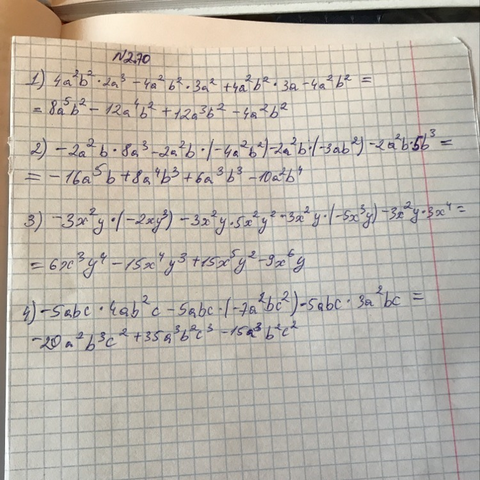 N270
1) 4a²b²·2a³-4a²b²·3a²+4a²b²·3a-4a²b² =
= 8a⁵b²-12a⁴b²+12a³b²-4a²b²
2) -2a²b·8a³-2a²b·(-4a²b²)-2a²b·(-3ab²)-2a²b·5b³ =
= -16a⁵b+8a⁴b³+6a³b³-10a²b⁴
3) -3x²y·(-2xy³)-3x²y·5x²y²-3x²y·(-5x³y)-3x²y·3x⁴ =
= 6x³y⁴-15x⁴y³+15x⁵y²-9x⁶y
4) -5abc·4ab²c-5abc·(-7a²bc²)-5abc·3a²bc =
-20a²b³c²+35a³b²c³-15a³b²c²